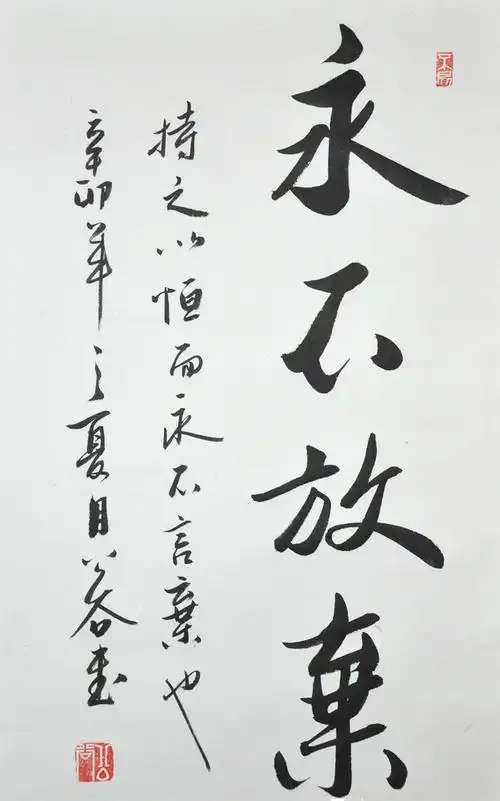 永不放棄
持之以恒而永不言棄也
辛卯年之夏月公谷书